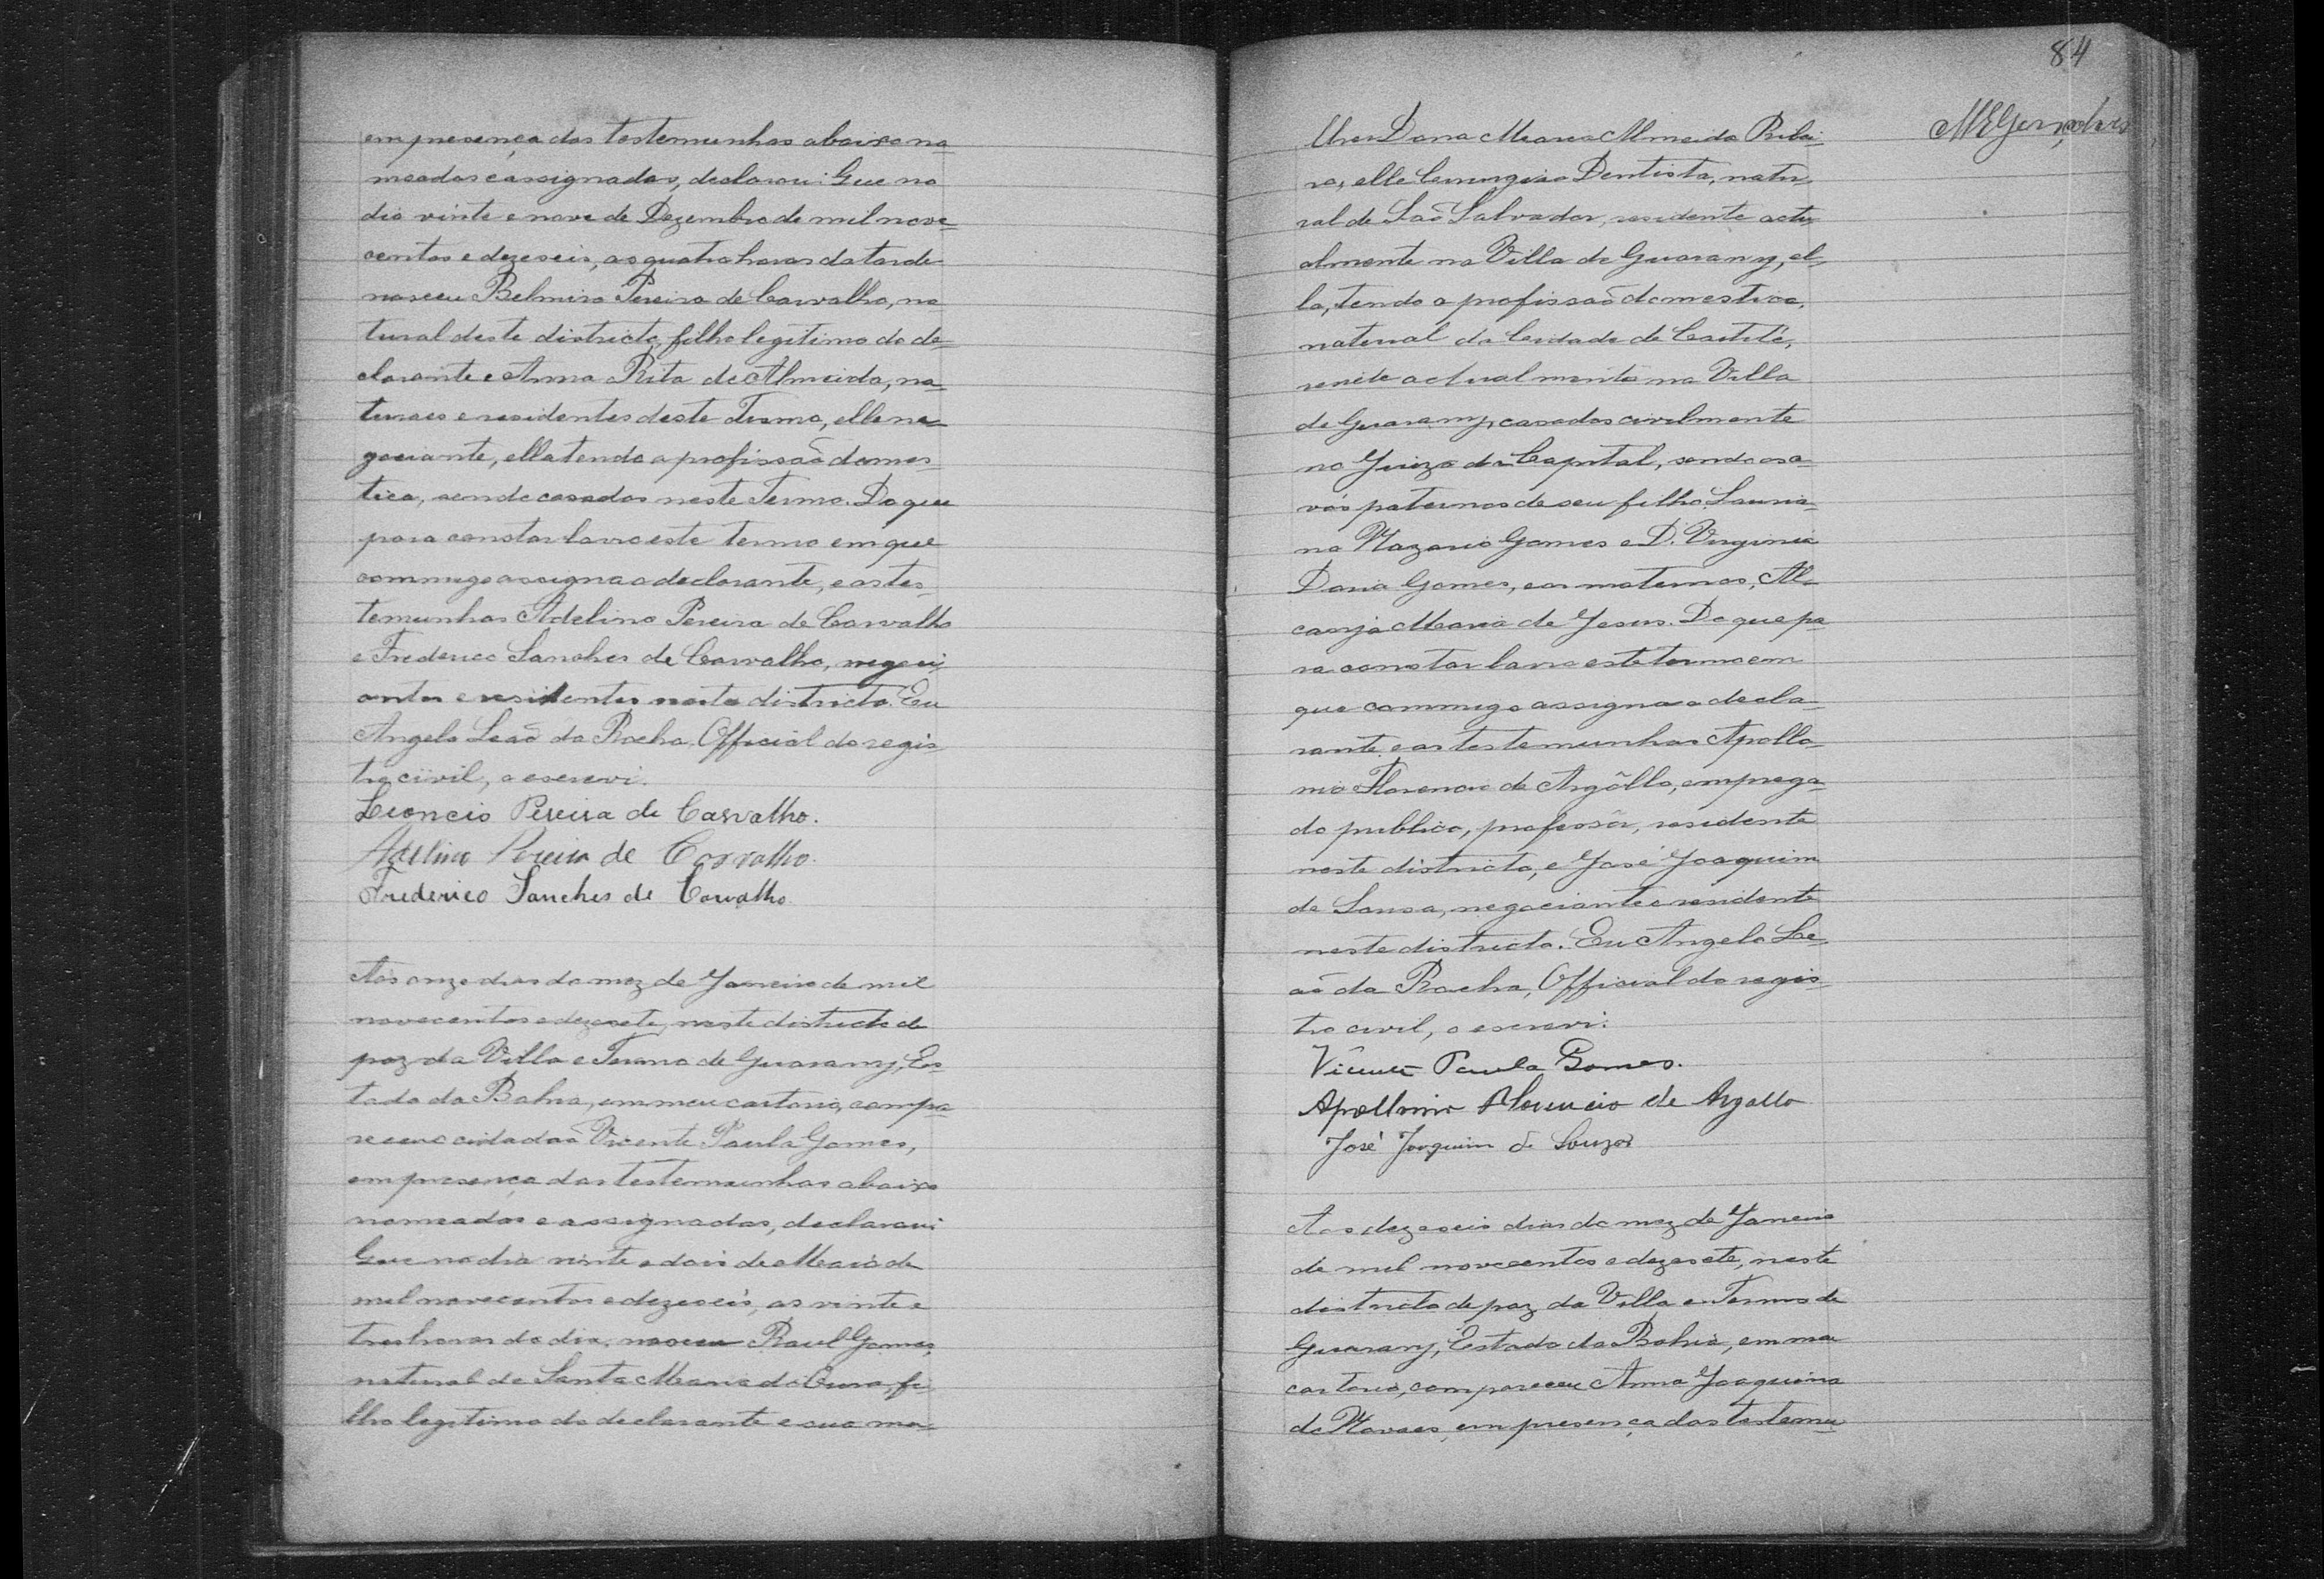 em presença das testemunhas abaixo no-
meadas e assignadas, declarou: Que no
dia vinte e nove de Dezembro de mil nove-
centos e dezeseis, as quatro horas da tarde
nasceu Belmiro Pereira de Carvalho, na
tural deste districto, filho legitimo do de-
clarante e Anna Rita de Almeida, na-
turaes e residentes deste Termo, elle ne-
gociante, ella tendo a profissaõ domes-
tica, sendo casados neste Termo. Do que
para constar lavro este termo em que
commigo assigna o declarante, e as tes-
temunhas Adelino Pereira de Carvalho
e Frederico Sanches de Carvalho, negoci
antes e residentes neste districto. Eu
Angelo Leaõ da Rocha, Official do regis
tro civil, o escrevi.
Leoncio Pereira de Carvalho.
Adelino Pereira de Carvalho.
Frederico Sanches de Carvalho
Aos onze dias do mez de Janeiro de mil
novecentos e dezesete, neste districto de
paz da Villa e Termo de Guarany, Es-
tado da Bahia, em meu cartorio, compa
receu o cidadaõ Vicente Paula Gomes,
em presença das testemunhas abaixo
nomeadas e assignadas, declarou:
Que no dia vinte e dois de Maio de
mil novecentos e dezeseis, as vinte e
tres horas do dia, nasceu Raul Gomes,
natural de Santa Maria da fi
lho legitimo do declarante e sua mu-
84
lher Dona Maria Almeida Ribei-
ro, elle Cirurgiaõ Dentista, natu-
ral de Saõ Salvador, residente actu-
almente na Villa de Guarany, el-
la, tendo a profissaõ domestica,
natural da Cidade de Caetité,
reside actualmente na Villa
de Guarany, casados civilmente
no Juizo da Capital, sendo os a-
vós paternos de seu filho Lauria-
no Nazario Gomes e D. Virginia
Daria Gomes, e os maternos, Al-
canja Maria de Jesus. Do que pa
ra constar lavro este termo em
que commigo assigna o decla-
rante e as testemunhas Apollo-
nio Florencio de Argôllo, emprega-
do publico, professôr, residente
neste districto, e José Joaquim
de Sousa, negociante e residente
neste districto. Eu Angelo Le-
aõ da Rocha, Official do regis-
tro civil, o escrevi.
Vicente Paula Gomes.
Apollonio Florencio de Argollo
José Joaquim de Souza
Aos dezeseis dias do mez de Janeiro
de mil novecentos e dezesete, neste
districto de paz da Villa e Termo de
Guarany, Estado da Bahia, em meu
cartorio, compareceu Anna Joaquina
de Novaes, em presença das testemu-